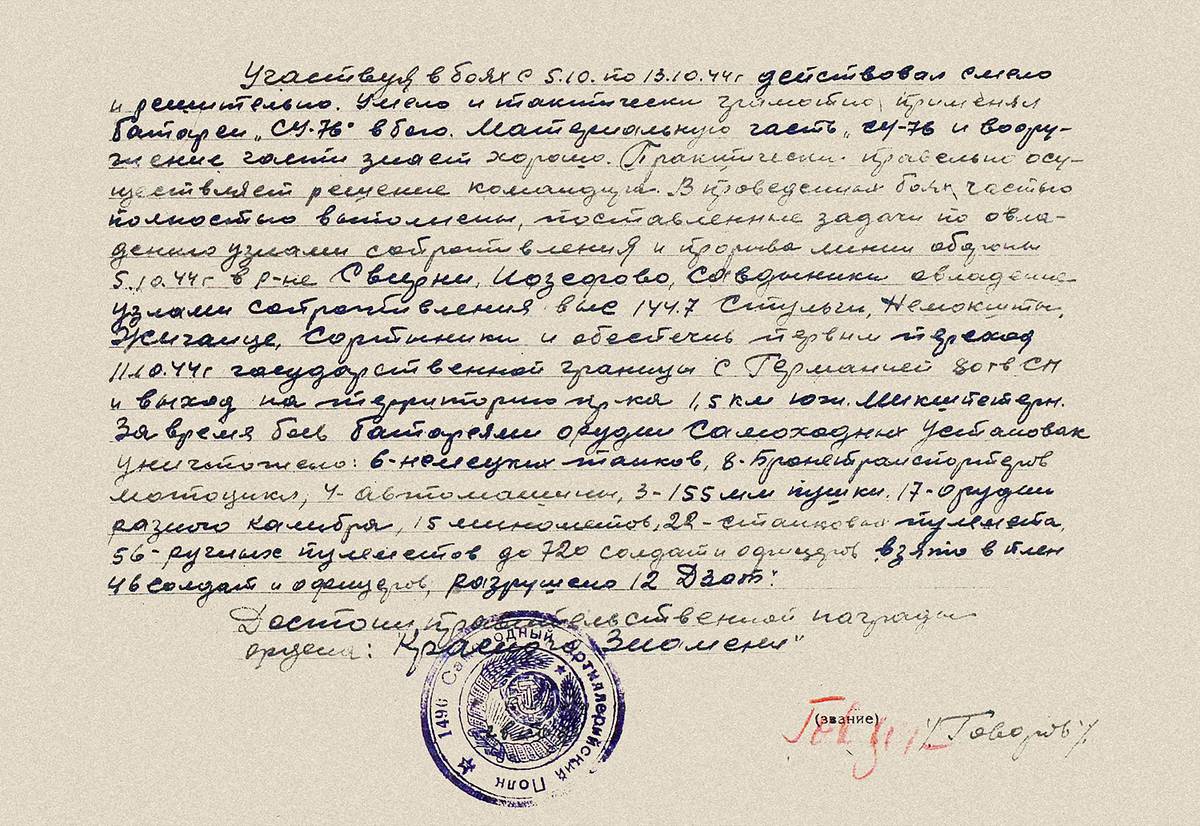 Участвуя в боях с 5.10. по 13.10.44г действовал смело
и решительно. Умело и тактически грамотно применял
батареи „СУ-76" в бою. Материальную часть „СУ-76 и воору-
жение части знает хорошо. Практически правельно осу-
ществляет решение командира. В проведенных боях частью
полностью выполнены, поставленные задачи по овла-
дению узлами сопротивления и прорыва линии обороны
5.10.44г в р-не Свирни, Козедгово, Савдыники овладение
узлами сопротивления выс 144.7 Стульги, Немокшты,
Жигайце, Сартыники и обеспечив первым переход
11.10.44г государственной границы с Германией 80гв СП
и выход на территорию пр-ка 1,5 км юж.
За время боев батареями орудии Самоходных Установак
уничтожено: 6-немецких танков, 8-Бронетранспортеров
мотоцикл, 4-автомашины, 3-155 мм пушки. 17-орудии
разного калибра, 15 минометов, 22-станковых пулемета,
56-ручных пулеметов до 720 солдат и офицеров взято в плен
46 солдат и офицеров, разрушено 12 Дзот".
Достоин правительственной награды
ордена: "Красного Знамени"
1496 Самоходный Артиллерийский Полк
(звание)
/Говоров/